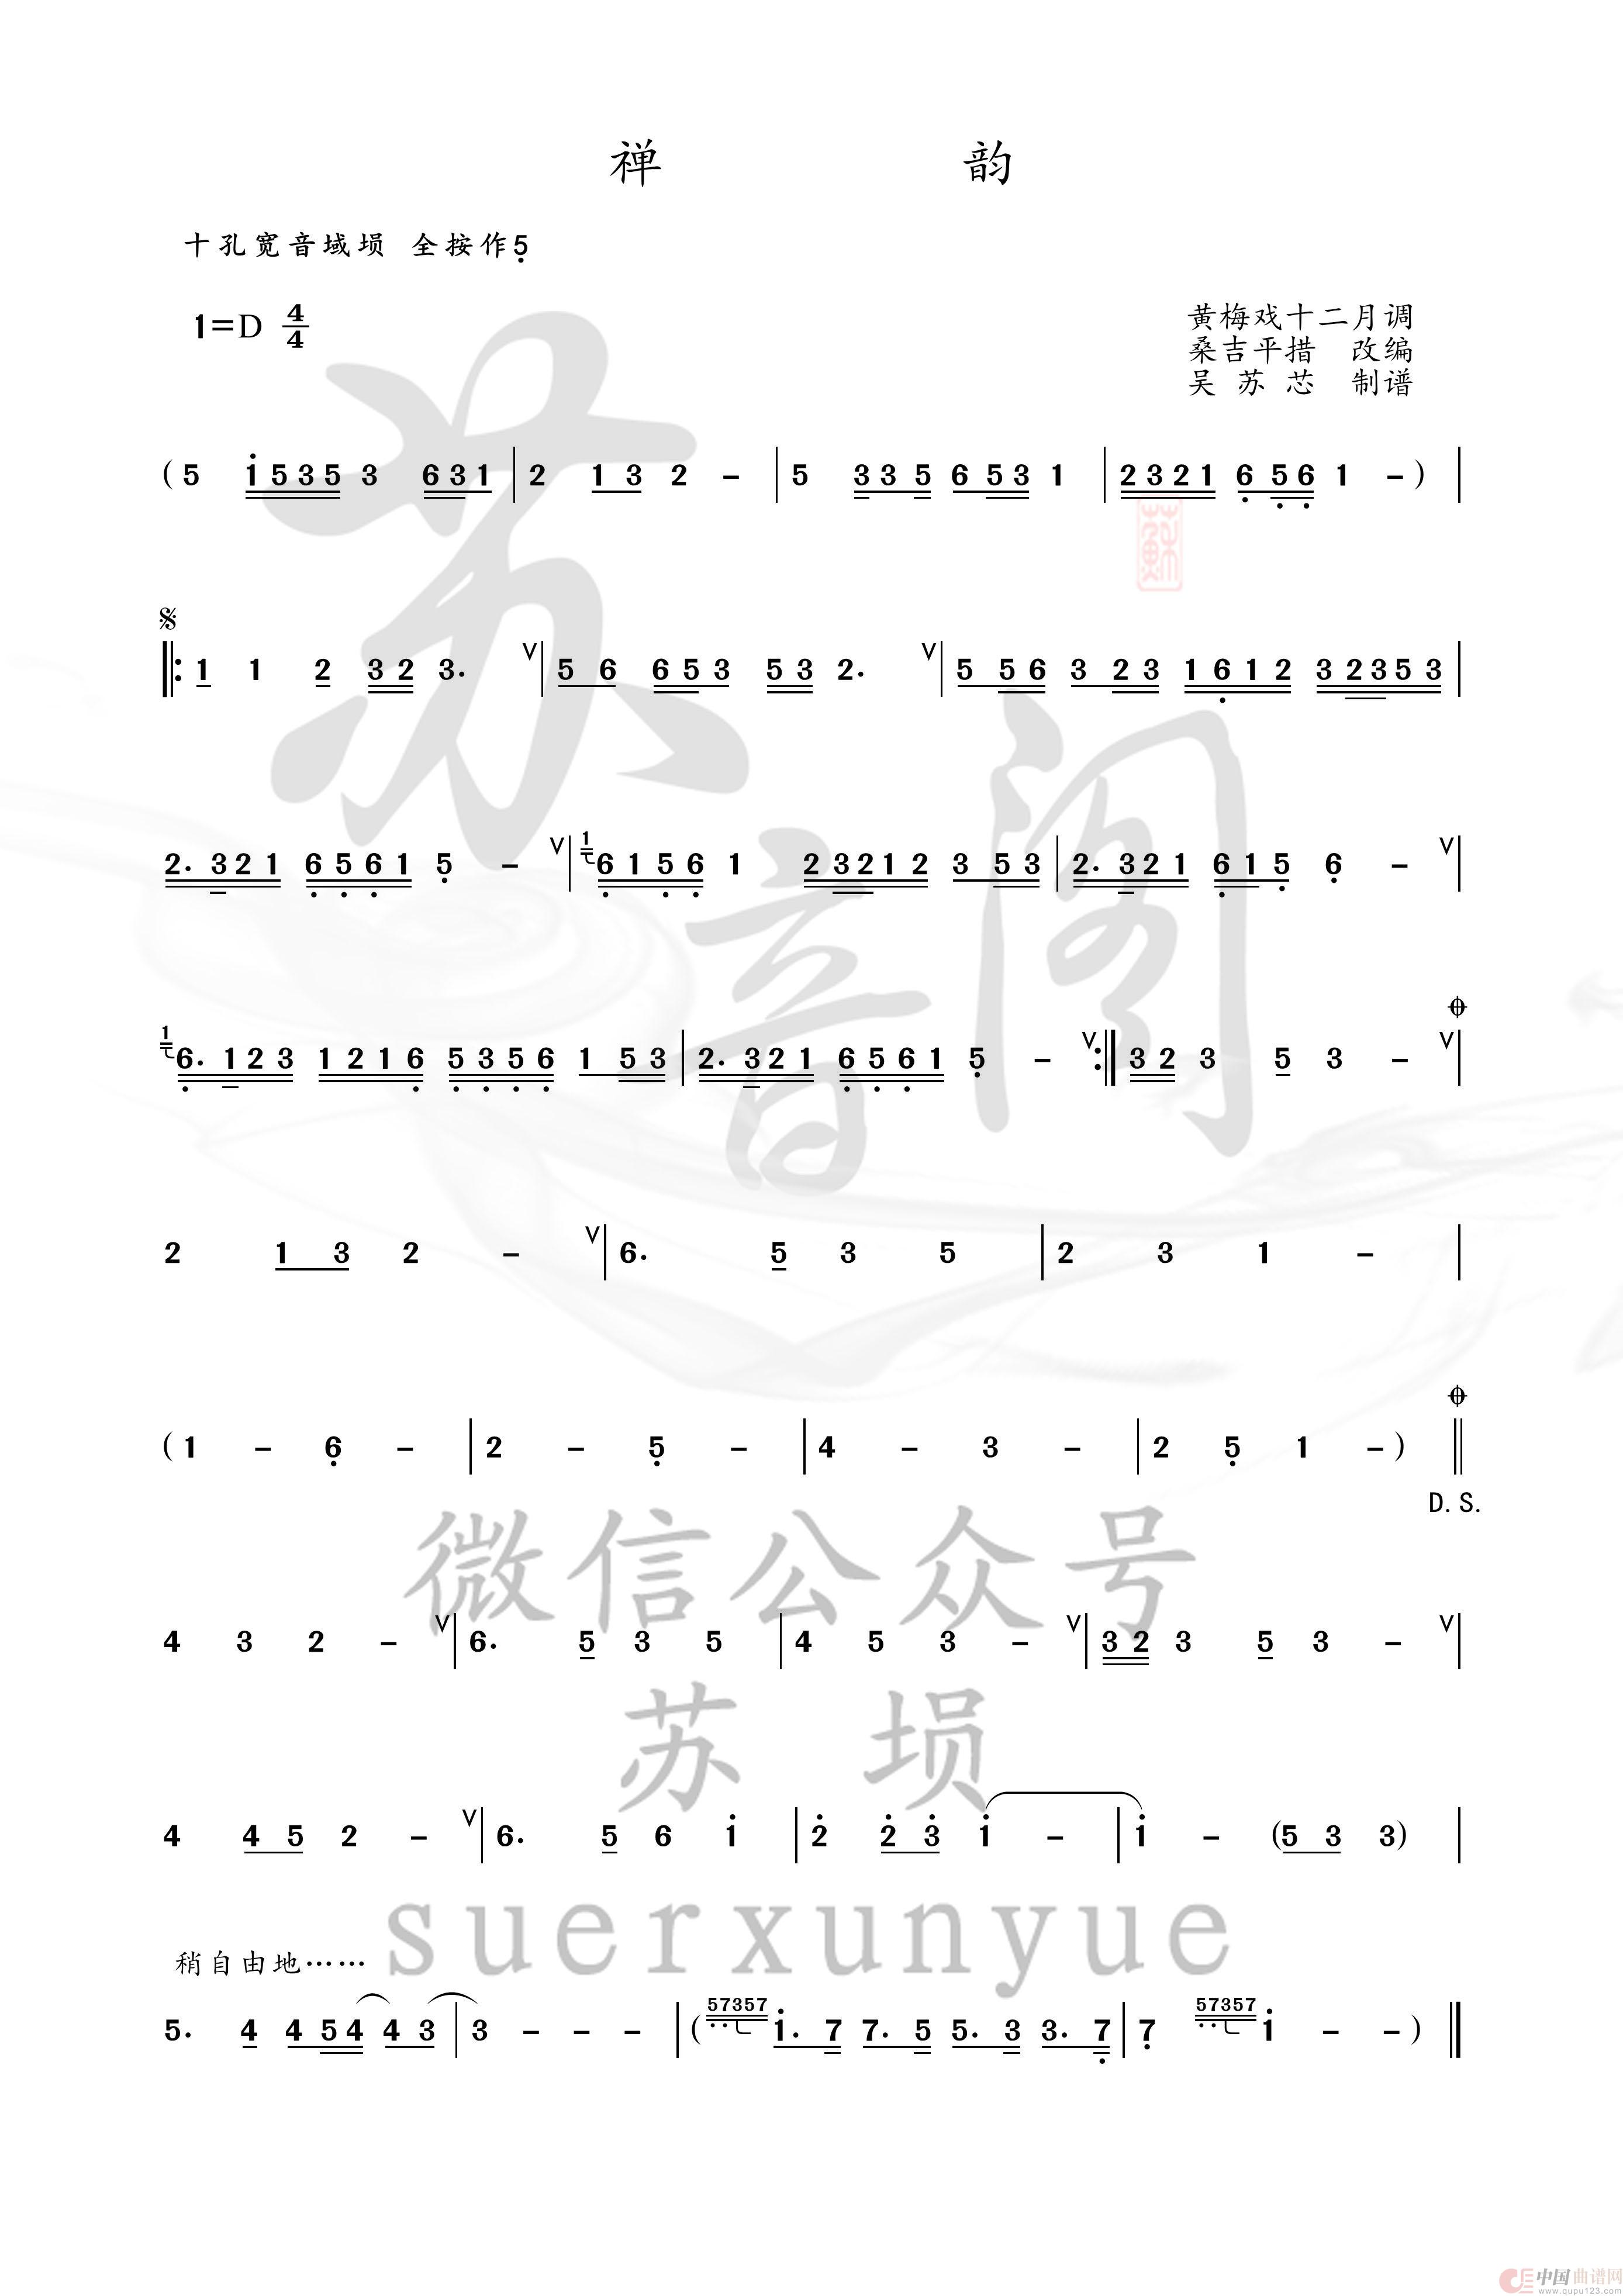 禅 韵
十孔宽音域埙 全按作5̣
1=D 4/4
黄梅戏十二月调
桑吉平措 改编
吴苏芯 制谱
( 5 1̇535 3 631 | 2 13 2 – | 5 335 653 1 | 2321 6̣5̣6̣ 1 – ) |
𝄋
‖: 1 1 2 32 3. V | 56 653 53 2. V | 556 323 16̣12 32353 |
2.321 6̣5̣6̣1 5̣ – V | 1 6̣15̣6̣ 1 23212 353 | 2.321 6̣15̣ 6̣ – V |
1 6̣.123 1216̣ 5̣3̣5̣6̣ 153 | 2.321 6̣5̣6̣1 5̣ – V :‖ 32 3 5 3 – V |
2 13 2 – V | 6. 5 3 5 | 2 3 1 – |
( 1 – 6̣ – | 2 – 5̣ – | 4 – 3 – | 2 5̣ 1 – ) ‖
D.S.
4 3 2 – V | 6. 5 3 5 | 4 5 3 – V | 32 3 5 3 – V |
4 45 2 – V | 6. 5 6 1̇ | 2̇ 2̇3̇ 1̇ – | 1̇ – (53 3) |
稍自由地……
5. 4 454 43 | 3 – – – | ( 57357 1̇.7 7.5 5.3 3.7̣ | 7̣ 57357 1̇ – – ) ‖
苏音阁
微信公众号
苏 埙
suerxunyue
中国曲谱网
www.qupu123.com